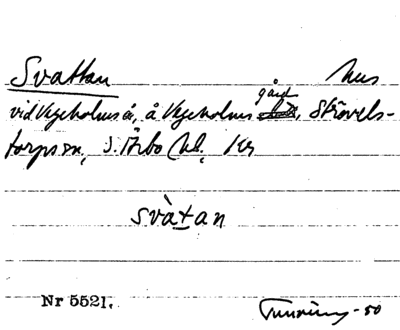 Svattan hus
vid Vegeholmså, å Vegeholms gård, Strövels-
torps sn, S. Åsbo hd, Kr
svàtan
Nr 5521.
-50